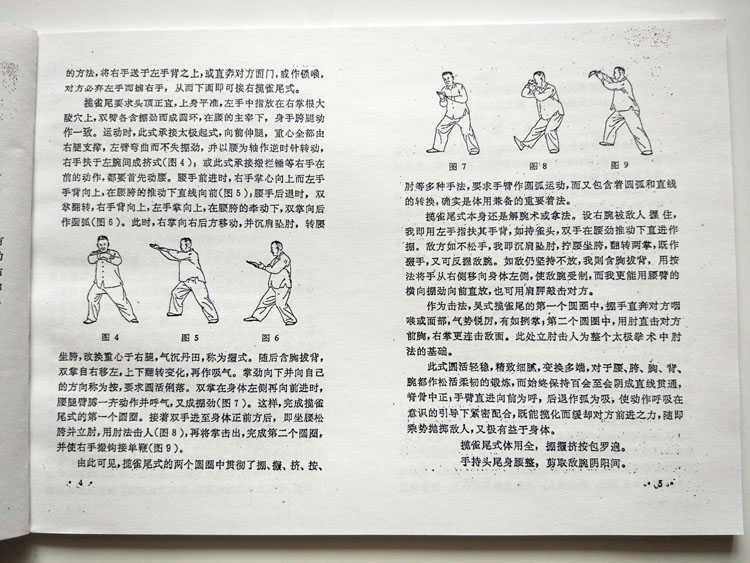 的方法，将右手送于左手背之上，或直奔对方面门，或作锁喉，
对方必弃左手而掤右手，从而下面即可接右揽雀尾式。
揽雀尾要求头顶正直，上身平准，左手中指放在右掌根大
陵穴上，双臂各含掤劲而成圆环，在腰的主宰下，身手胯腿动
作一致。运动时，此式承接太极起式，向前伸腿，重心全部由
右腿支撑，左臂弯曲而不失掤劲，并以腰为轴作逆时针转动，
右手扶于左腕间成挤式（图4）；或此式承接搬拦锤等右手在
前的动作，都要首先动腰。腰手前进时，右手掌心向上而左手
手背向上，在腰胯的推动下直线向前（图5），腰手后退时，双
掌翻转，右手背向上，左手掌向上，在腰胯的牵动下，双掌向后
作圆弧（图6）。此时，右掌向右后方移动，并沉肩坠肘，转腰
图4
图5
图6
坐胯，改换重心于右腿，气沉丹田，称为握式。随后含胸拔背，
双掌自右移左，上下翻转变化，再作吸气。掌劲向下并向自己
的方向称为按，要求圆活俐落。双掌在身体左侧再向前进时，
腰腿臂膊一齐动作并呼气，又成掤劲（图7）。这样，完成揽雀
尾式的第一个圆圈。接着双手进至身体正前方后，即坐腰松
胯并立肘，用肘法击人（图8），再将掌击出，完成第二个圆圈，
并使右手撮钩接单鞭（图9）。
由此可见，揽雀尾式的两个圆圈中贯彻了掤、握、挤、按、
4
图7
图8
图9
肘等多种手法，要求手臂作圆弧运动，而又包含着圆弧和直线
的转换，确实是体用兼备的重要着法。
揽雀尾式本身还是解腕术或拿法。设右腕被敌人握住，
我即用左手指扶其手背，如持雀头，双手在腰劲推动下直进作
掤。敌方如不松手，我即沉肩坠肘，拧腰坐胯，翻转两掌，既作
握手，又可反握敌腕。如敌仍坚持不放，我则含胸拔背，用按
法将手从右侧移向身体左侧，使敌腕受制，而我更能用腰臂的
横向掤劲向前直放，也可用肩胛敲击对方。
作为击法，吴式揽雀尾的第一个圆圈中，掤手直奔对方咽
喉或面部，气势锐厉，有如例掌；第二个圆圈中，用肘直击对方
前胸，右掌更连击敌面。此处立肘击人为整个太极拳术中肘
法的基础。
此式圆活轻稳，精致细腻，变换多端，对于腰、胯、胸、背、
腕都作松活柔韧的锻炼，而始终保持百会至会阴成直线贯通，
脊骨中正，手臂直进向前为呼，后退作弧为吸，使动作呼吸在
意识的引导下紧密配合，既能揽化而缓却对方前进之力，随即
乘势抛掷敌人，又极有益于身体。
揽雀尾式体用全，掤握挤按包罗遍。
手持头尾身腰整，剪取敌腕阴阳间。
5